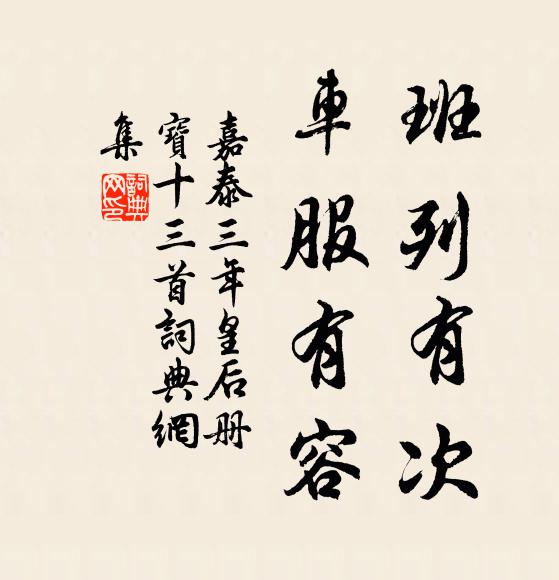 班列有次
車服有容
嘉泰三年皇后册
寶十三首詞典網
集
詞典
网印